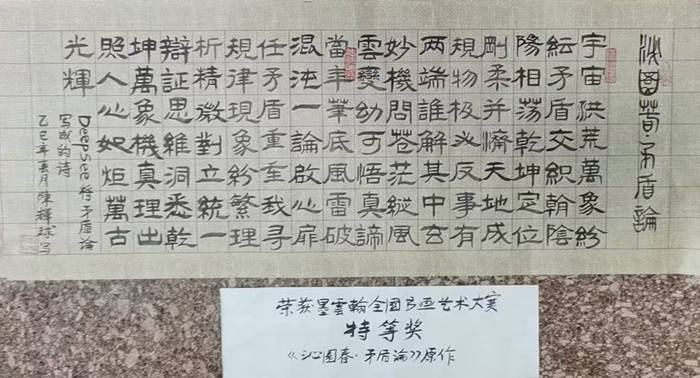 沁園萅·矛盾論
宇宙洪荒萬象紛
紜矛盾交織翰陰
陽相蕩乾坤定位
剛柔并濟天地成
規物極必反事有
两端誰解其中玄
妙機問苍茫縱風
雲變幼可悟真諦
當年筆底風雷破
混沌一論啟心扉
任矛盾重至我寻
規律現象紛繁理
析精微對立統一
辯証思維洞悉乾
坤萬象機真理出
照人心如炬萬古
光輝
DeepSee 将矛盾论
写成的诗
乙巳年春月陳輝球写
荣获墨雲翰全国书画艺术大赛
特等奖
《沁園春·矛盾論》原作